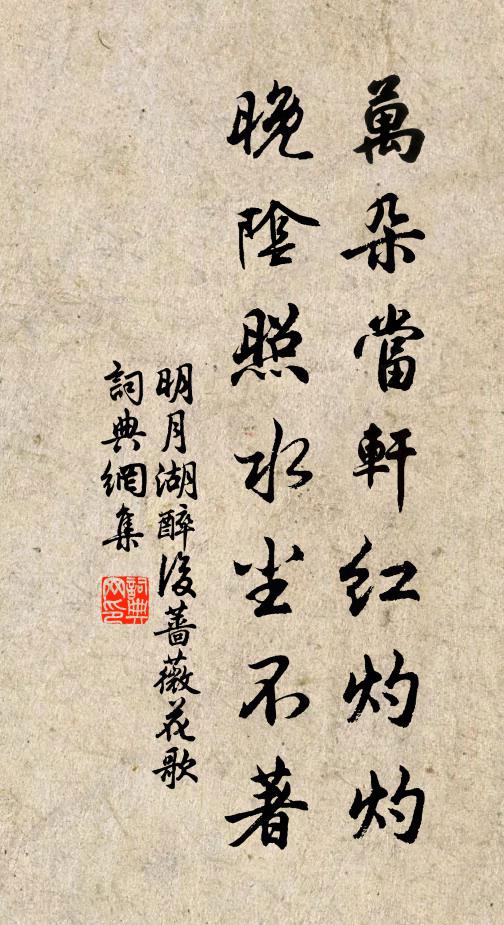 萬朵當軒红灼灼
晚陰照水尘不著
明月湖醉後薔薇花歌
詞典網集
詞典
网印